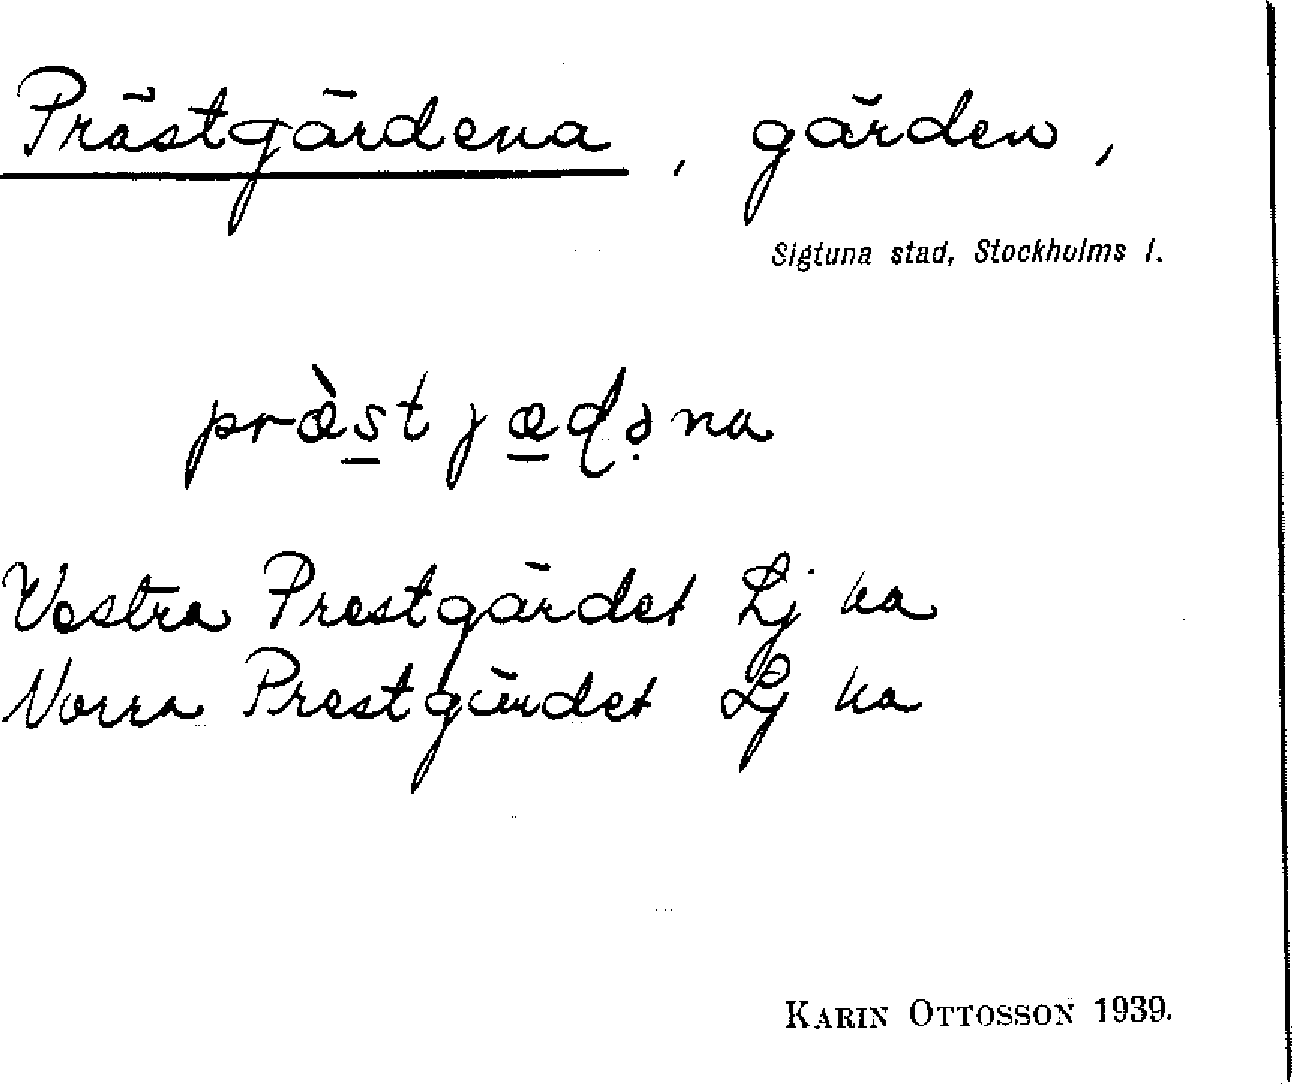 Prästgärdena, gärden,
Sigtuna stad, Stockholms l.
præ̀s̲tjæ̲ɖə̣na
Vestra Prestgärdet Lj ka
Norra Prestgärdet Lj ka
KARIN OTTOSSON 1939.